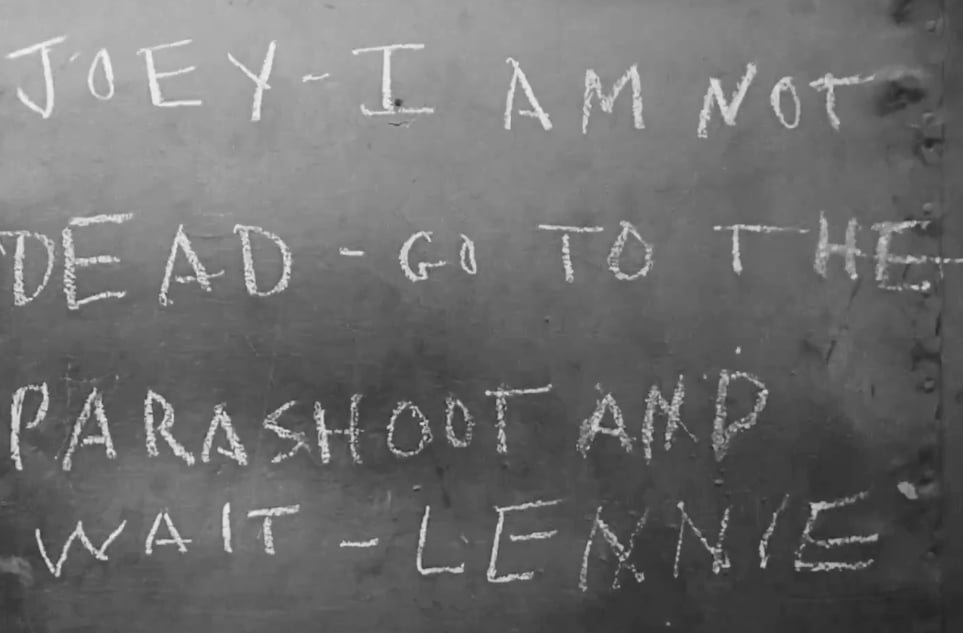 JOEY-I AM NOT
DEAD-GO TO THE
PARASHOOT AND
WAIT-LENNIE